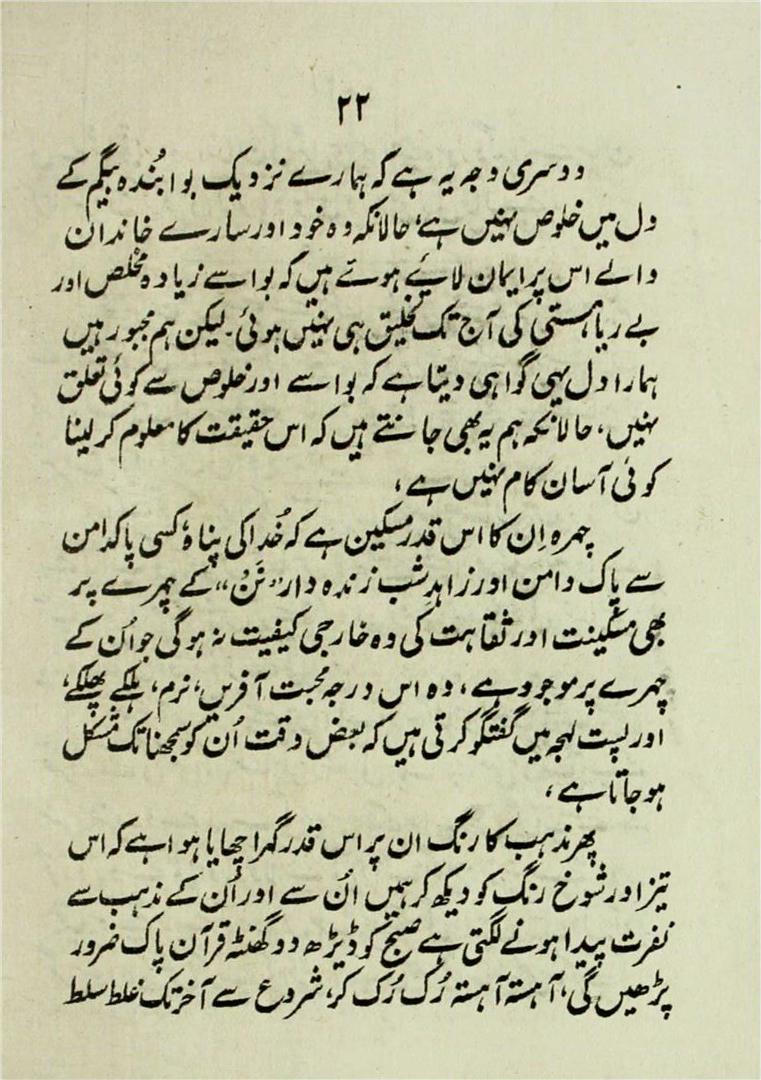 ۲۲
دوسری وجہ یہ ہے کہ ہمارے نزدیک بوا بُندہ بیگم کے
دل میں خلوص نہیں ہے، حالانکہ وہ خود اور سارے خاندان
والے اس پر ایمان لائے ہوئے ہیں کہ بوا سے زیادہ مخلص اور
بے ریا ہستی کی آج تک تخلیق ہی نہیں ہوئی۔ لیکن ہم مجبور ہیں
ہمارا دل یہی گواہی دیتا ہے کہ بوا سے اور خلوص سے کوئی تعلق
نہیں، حالانکہ ہم یہ بھی جانتے ہیں کہ اس حقیقت کا معلوم کر لینا
کوئی آسان کام نہیں ہے،
چہرہ اِن کا اس قدر مسکین ہے کہ خُدا کی پناہ، کسی پاکدامن
سے پاک دامن اور زاہدِ شب زندہ دار "نَن" کے چہرے پر
بھی مسکینت اور ثقاہت کی وہ خارجی کیفیت نہ ہو گی جو اُن کے
چہرے پر موجود ہے، وہ اس درجہ محبت آفریں، نرم، ہلکے پھلکے،
اور پست لہجہ میں گفتگو کرتی ہیں کہ بعض وقت اُن کو سمجھنا تک مشکل
ہو جاتا ہے،
پھر مذہب کا رنگ ان پر اس قدر گہرا چھایا ہوا ہے کہ اس
تیز اور شوخ رنگ کو دیکھ کر ہمیں اُن سے اور اُن کے مذہب سے
نفرت پیدا ہونے لگتی ہے صبح کو ڈیڑھ دو گھنٹہ قرآن پاک ضرور
پڑھیں گی، آہستہ آہستہ رُک رُک کر، شروع سے آخر تک غلط سلط